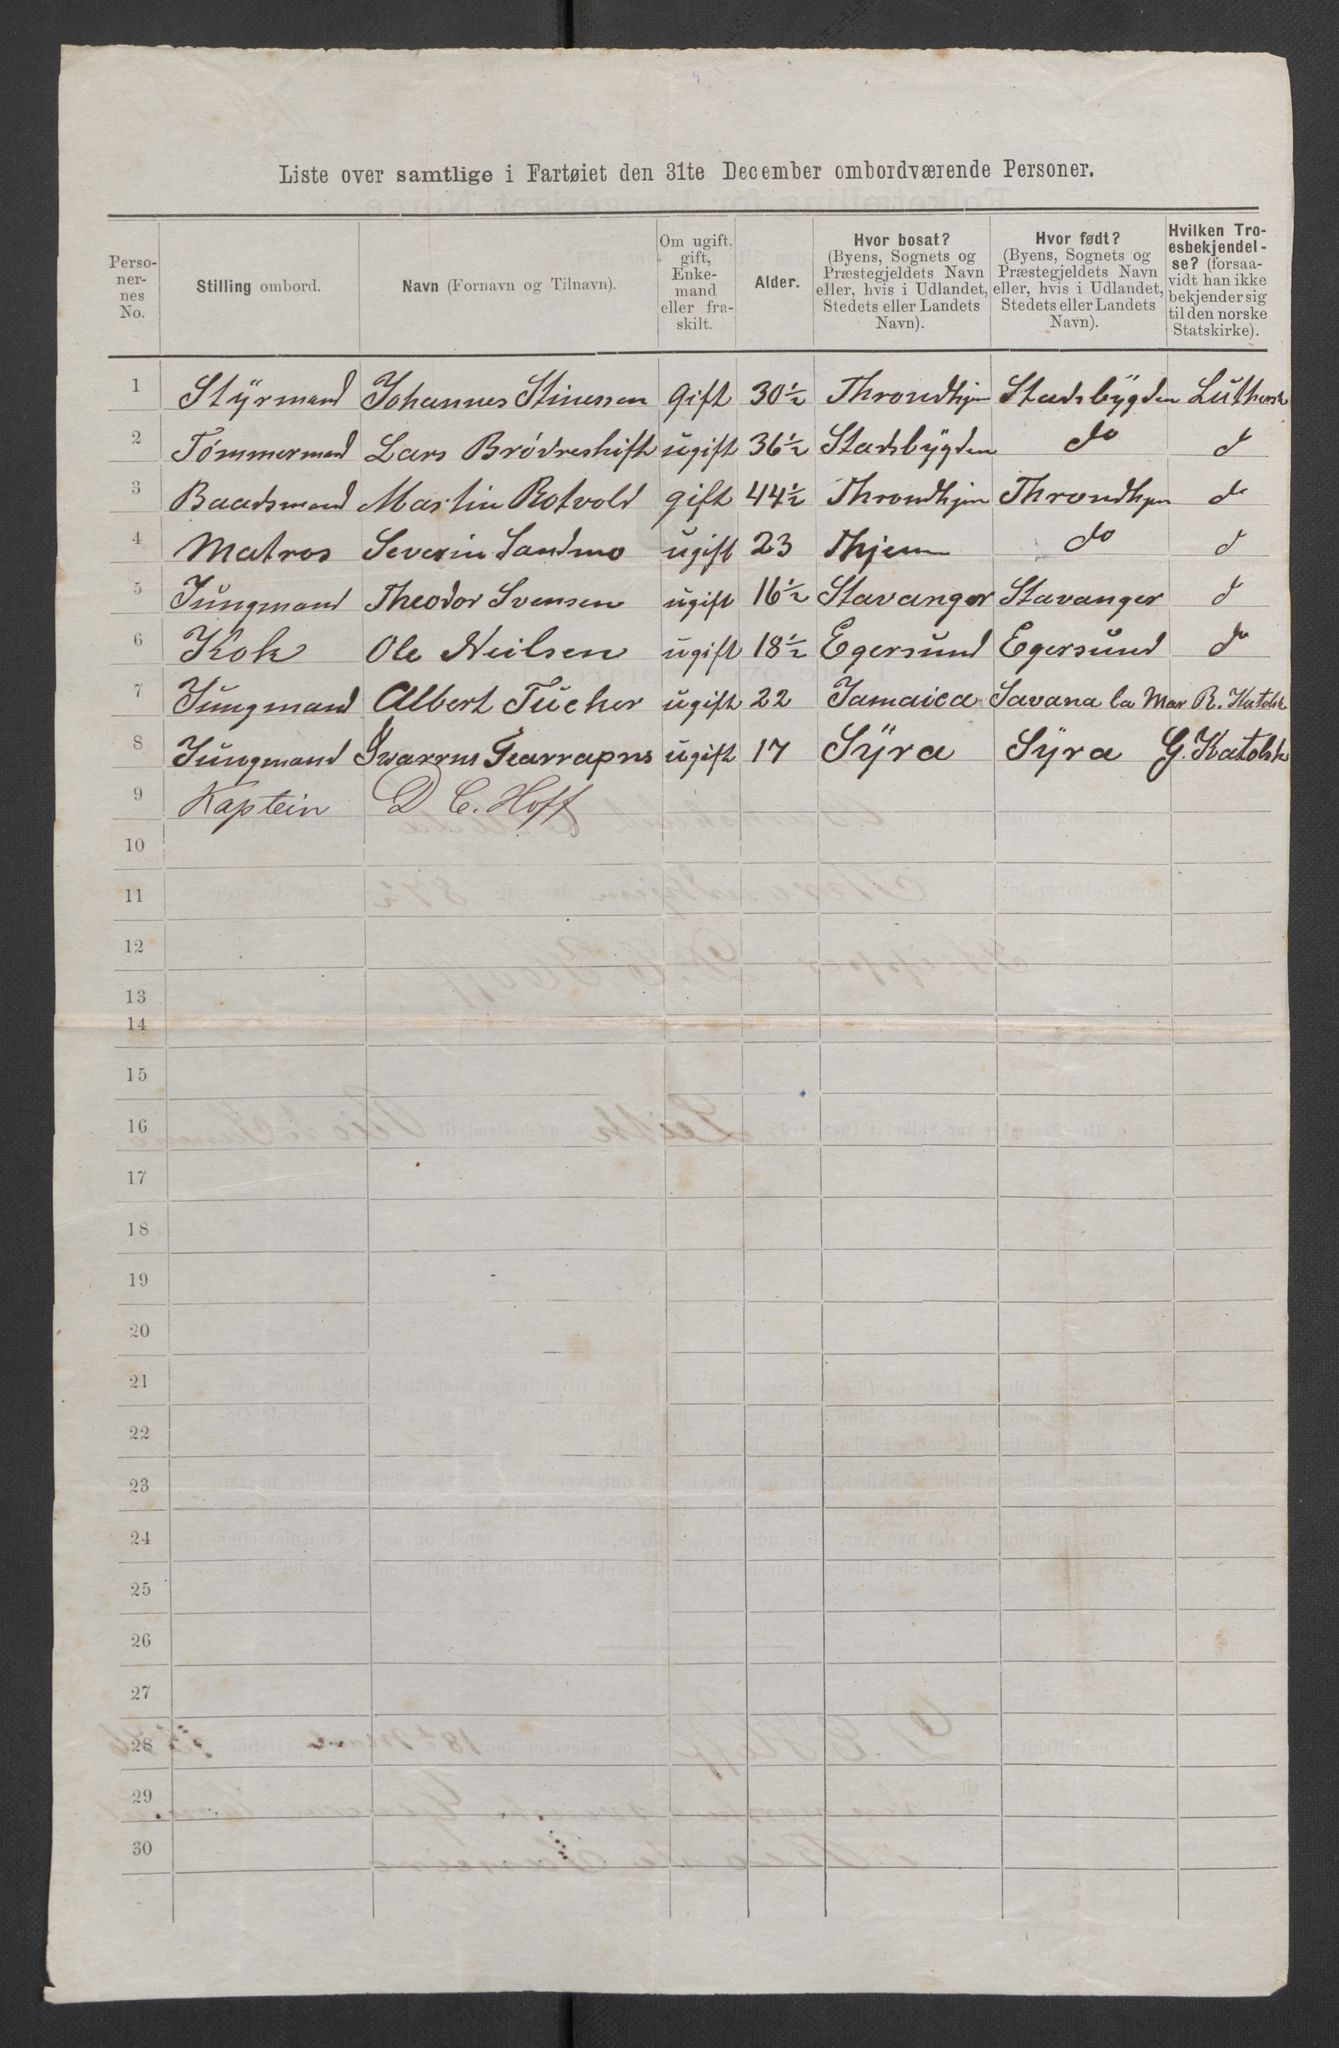 Liste over samtlige i Fartøiet den 31te December ombordværende Personer.
Perso-
ner-
nes
No.
Stilling ombord.
Navn (Fornavn og Tilnavn).
Om ugift,
gift,
Enke-
mand
eller fra-
skilt.
Alder.
Hvor bosat?
(Byens, Sognets og
Præstegjeldets Navn
eller, hvis i Udlandet,
Stedets eller Landets
Navn).
Hvor født?
(Byens, Sognets og
Præstegjeldets Navn
eller, hvis i Udlandet,
Stedets eller Landets
Navn).
Hvilken Tro-
esbekjendel-
se? (forsaa-
vidt han ikke
bekjender sig
til den norske
Statskirke).
1 Styrmand Johannes Stinessen gift 30½ Throndhjem Stadsbygden Luthersk
2 Tømmermand Lars Brødreskift ugift 36½ Stadsbygden do d
3 Baadsmand Martin Rotvold gift 44½ Throndhjem Throndhjem do
4 Matros Severin Sandmo ugift 23 Thjem do d
5 Jungmand Theodor Svensen ugift 16½ Stavanger Stavanger d
6 Kok Ole Neilsen ugift 18½ Egersund Egersund do
7 Jungmand Albert Tucker ugift 22 Jamaica Savana la Mar R. Katolsk
8 Jungmand ugift 17 Syra Syra G. Katolsk
9 Kaptein D C. Hoff
10
11
12
13
14
15
16
17
18
19
20
21
22
23
24
25
26
27
28
29
30